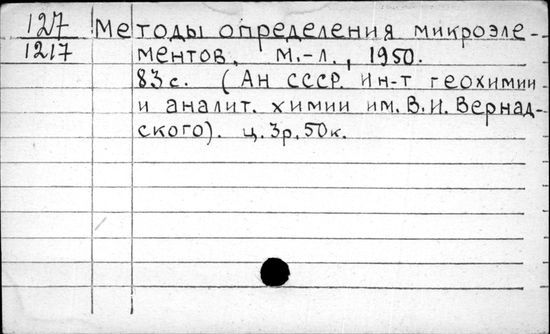 127 Методы определения микроэле-
1217 ментов. М.-Л., 1950.
83 с. (Ан СССР. Ин-т геохимии
и аналит. химии им. В.И. Вернад-
ского). ц. 3р. 50к.